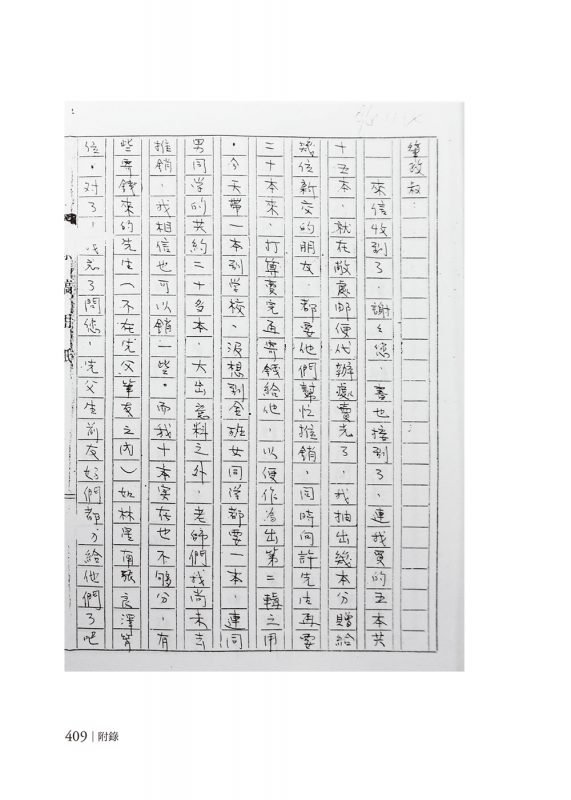 鍾政叔：
來信收到了，謝々您，書也接到了，連我買的五本共
十五本，就在敝處郵便代辦處賣光了，我抽出幾本分贈給
幾位新交的朋友，都要他們幫忙推銷，同時向許先生再要
二十本來，打算賣完再寄錢給他，以便作為出第二輯之用
。今天帶一本到学校，沒想到全班女同学都要一本，連同
男同学的共約二十多本，大出意料之外，老師們我尚未去
推銷，我相信也可以銷一些。而我十本実在也不够分，有
些寄錢來的先生（不在先父筆友之內）如林南張良澤等
位。对了，忘了問您，先父生前友好們都分給他們了吧
409｜附錄